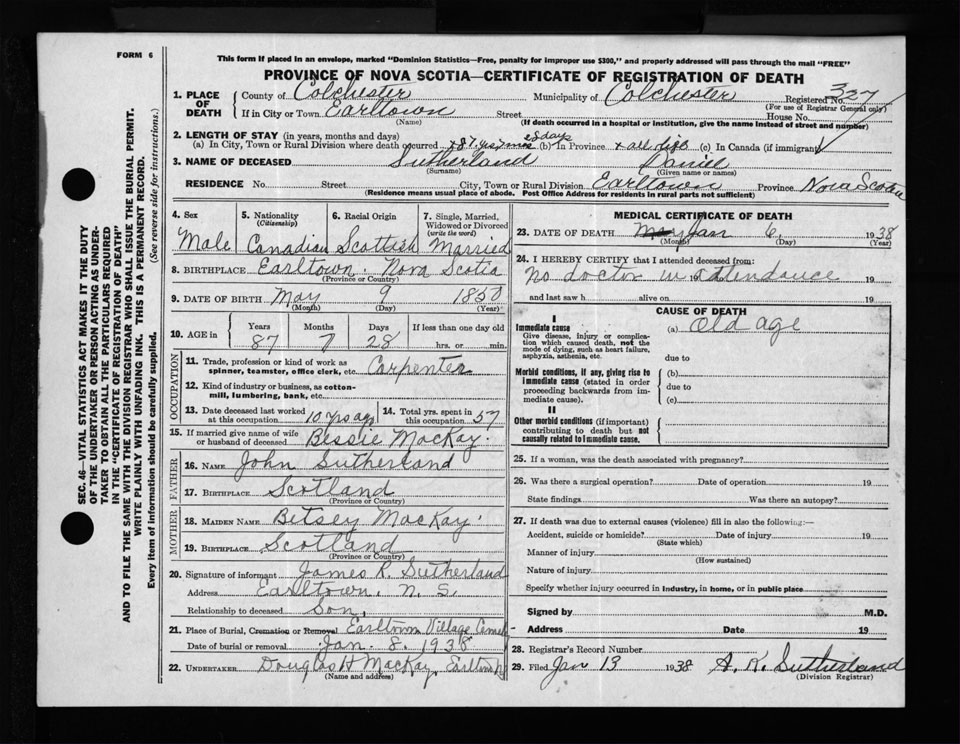 FORM 6
This form if placed in an envelope, marked "Dominion Statistics—Free, penalty for improper use $300," and properly addressed will pass through the mail "FREE"
PROVINCE OF NOVA SCOTIA—CERTIFICATE OF REGISTRATION OF DEATH
1. PLACE OF DEATH
County of Colchester Municipality of Colchester Registered No. 327
(For use of Registrar General Only)
If in City or Town Earltown Street House No.
(Name) (If death occurred in a hospital or institution, give the name instead of street and number)
2. LENGTH OF STAY (in years, months and days)
(a) In City, Town or Rural Division where death occurred 87 yrs 7 mos 28 days (b) In Province all life (c) In Canada (if immigrant)
3. NAME OF DECEASED Sutherland Daniel
(Surname) (Given name or names)
RESIDENCE No. Street City, Town or Rural Division Earltown Province Nova Scotia
(Residence means usual place of abode. Post Office Address for residents in rural parts not sufficient)
4. Sex 5. Nationality (Citizenship) 6. Racial Origin 7. Single, Married, Widowed or Divorced (write the word)
Male Canadian Scottish Married
8. BIRTHPLACE Earltown. Nova Scotia
(Province or Country)
9. DATE OF BIRTH May 9 1850
(Month) (Day) (Year)
10. AGE in Years Months Days If less than one day old
87 7 28 hrs. or min.
OCCUPATION
11. Trade, profession or kind of work as spinner, teamster, office clerk, etc. Carpenter
12. Kind of industry or business, as cotton-mill, lumbering, bank, etc.
13. Date deceased last worked at this occupation 10 yrs ago 14. Total yrs. spent in this occupation 57
15. If married give name of wife or husband of deceased Bessie MacKay.
FATHER
16. NAME John Sutherland
17. BIRTHPLACE Scotland
(Province or Country)
MOTHER
18. MAIDEN NAME Betsey MacKay
19. BIRTHPLACE Scotland
(Province or Country)
20. Signature of informant James R. Sutherland
Address Earltown. N. S.
Relationship to deceased Son.
21. Place of Burial, Cremation or Removal Earltown Village Cemetery
Date of burial or removal Jan. 8. 1938
22. UNDERTAKER Douglas H MacKay, Earltown
(Name and address)
MEDICAL CERTIFICATE OF DEATH
23. DATE OF DEATH May Jan 6 1938
(Month) (Day) (Year)
24. I HEREBY CERTIFY that I attended deceased from:
No doctor in attendance 19
and last saw h alive on 19
CAUSE OF DEATH
I
Immediate cause (a) Old age
Give disease, injury or complication which caused death, not the mode of dying, such as heart failure, asphyxia, asthenia, etc.
due to
Morbid conditions, if any, giving rise to immediate cause (stated in order proceeding backwards from immediate cause).
(b)
due to
(c)
II
Other morbid conditions (if important) contributing to death but not causally related to immediate cause.
25. If a woman, was the death associated with pregnancy?
26. Was there a surgical operation? Date of operation 19
State findings Was there an autopsy?
27. If death was due to external causes (violence) fill in also the following:—
Accident, suicide or homicide? Date of injury 19
(State which)
Manner of injury
(How sustained)
Nature of injury
Specify whether injury occurred in industry, in home, or in public place
Signed by M.D.
Address Date 19
28. Registrar's Record Number
29. Filed Jan 13 1938 A. K. Sutherland
(Division Registrar)
SEC. 46—VITAL STATISTICS ACT MAKES IT THE DUTY
OF THE UNDERTAKER OR PERSON ACTING AS UNDER-
TAKER TO OBTAIN ALL THE PARTICULARS REQUIRED
IN THE "CERTIFICATE OF REGISTRATION OF DEATH"
AND TO FILE THE SAME WITH THE DIVISION REGISTRAR WHO SHALL ISSUE THE BURIAL PERMIT.
WRITE PLAINLY WITH UNFADING INK. THIS IS A PERMANENT RECORD.
Every item of information should be carefully supplied. (See reverse side for instructions.)